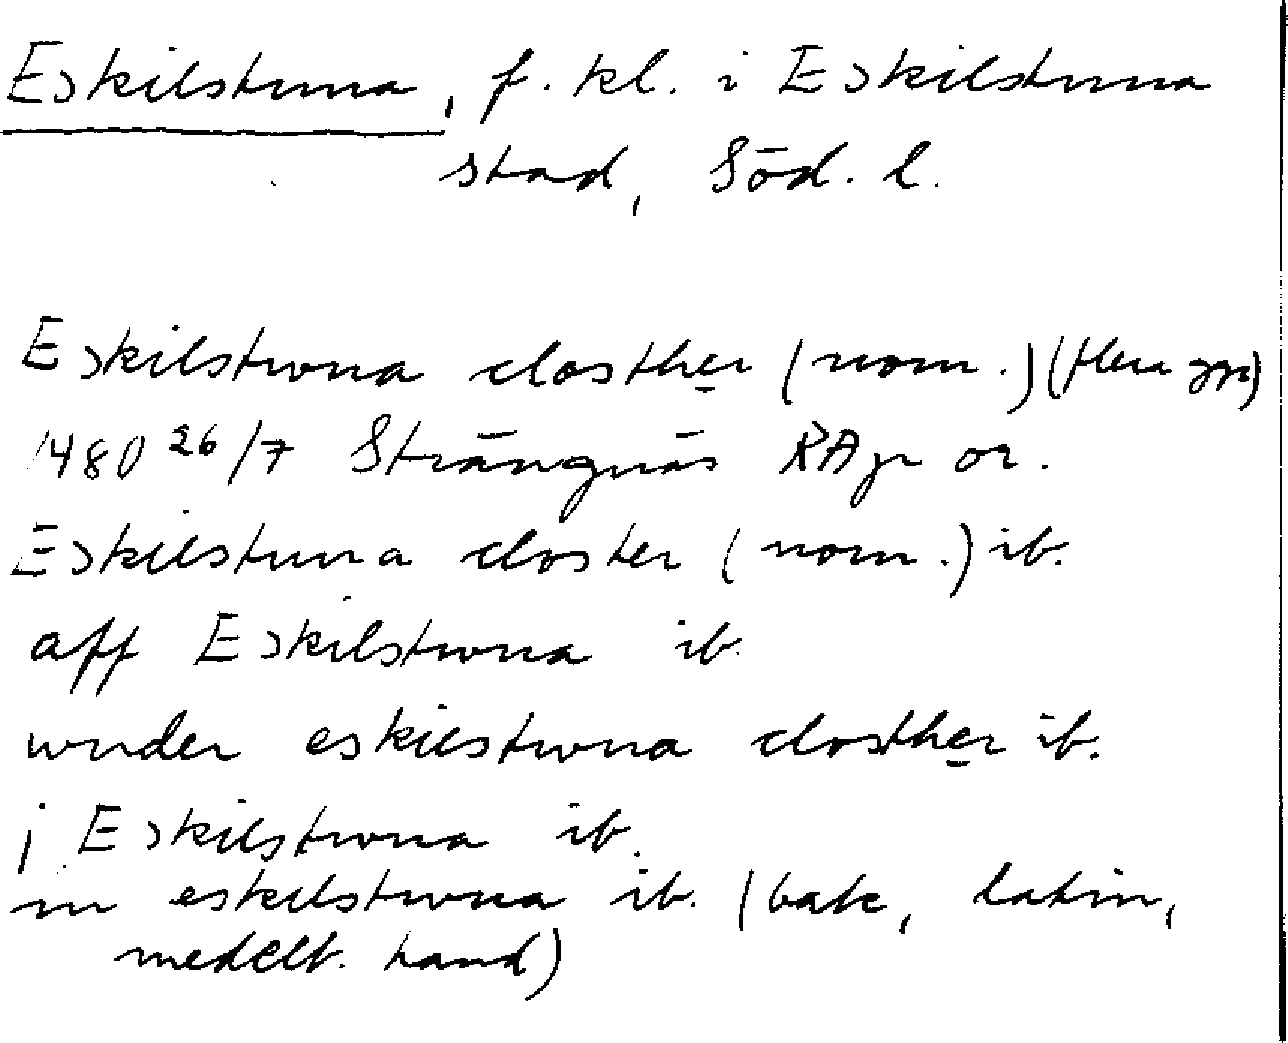 Eskilstuna, f. kl. i Eskilstuna
stad, Söd. l.
Eskilstwna closther (nom.) (flera ggr)
1480 26/7 Strängnäs RAp or.
Eskilstuna closter (nom.) ib.
aff Eskilstwna ib.
wnder eskilstwna closther ib.
j Eskilstwna ib.
in eskilstwna ib. (bak, latin,
medelt. hand)